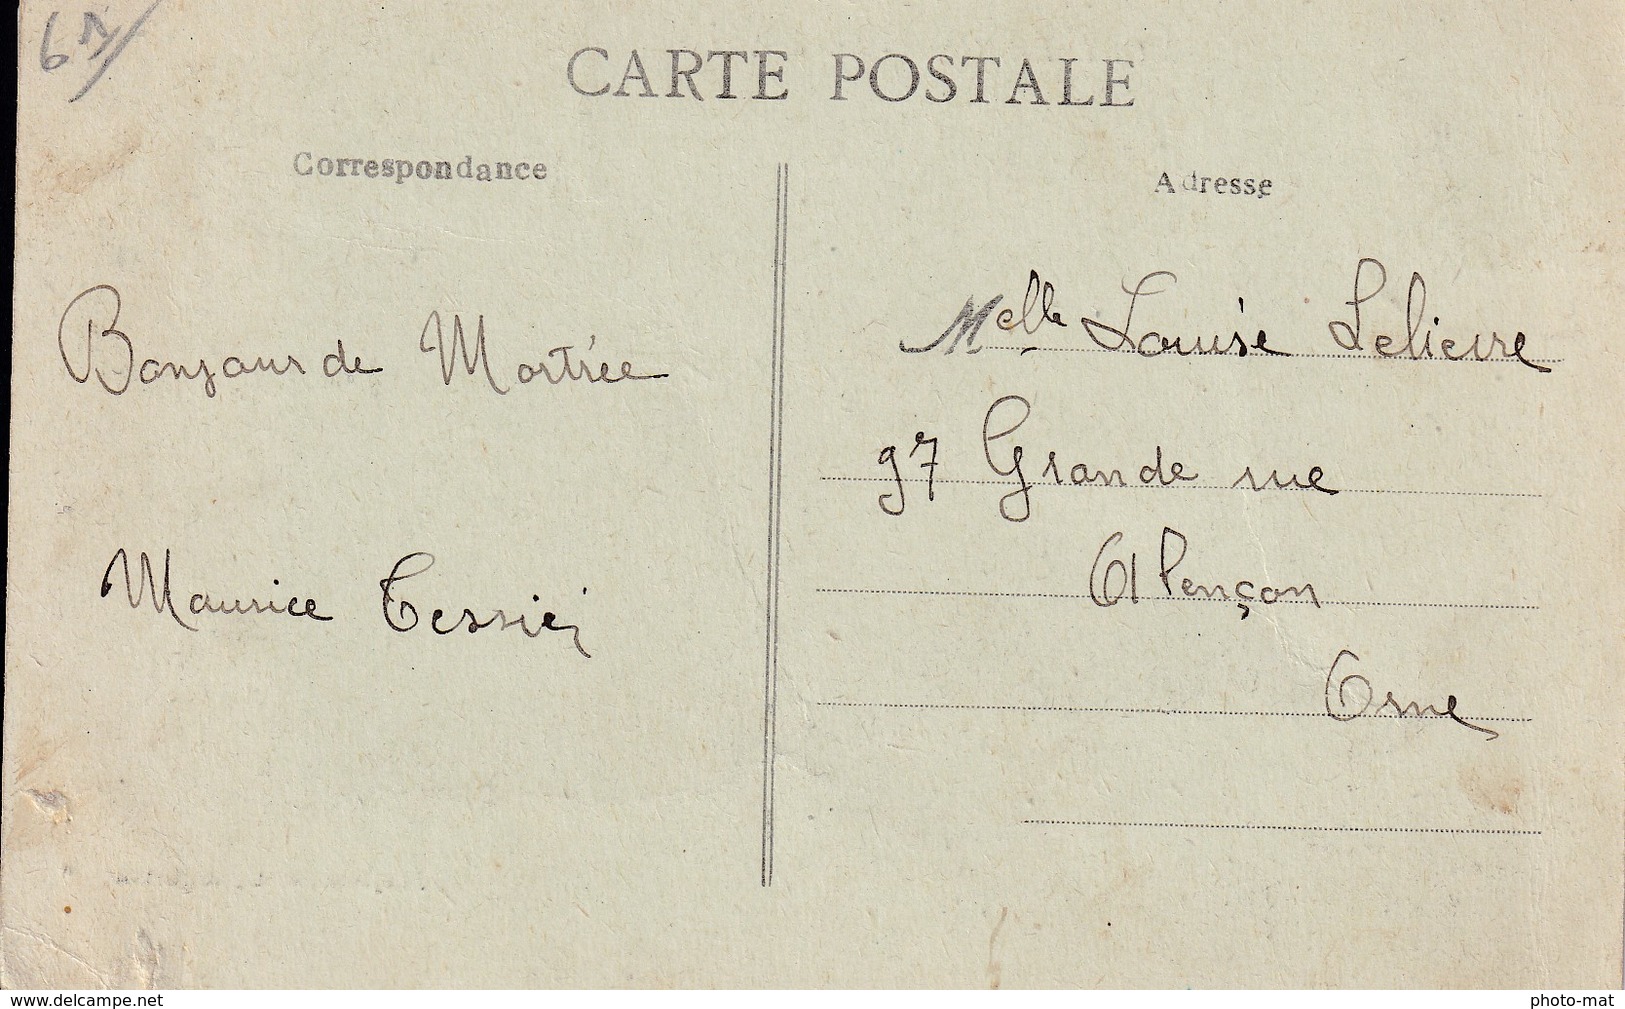 61
CARTE POSTALE
Correspondance
Bonjour de Mortrée
Maurice Tessier
Adresse
Melle Louise Lelievre
97 Grande rue
Alençon
Orne
www.delcampe.net
photo-mat